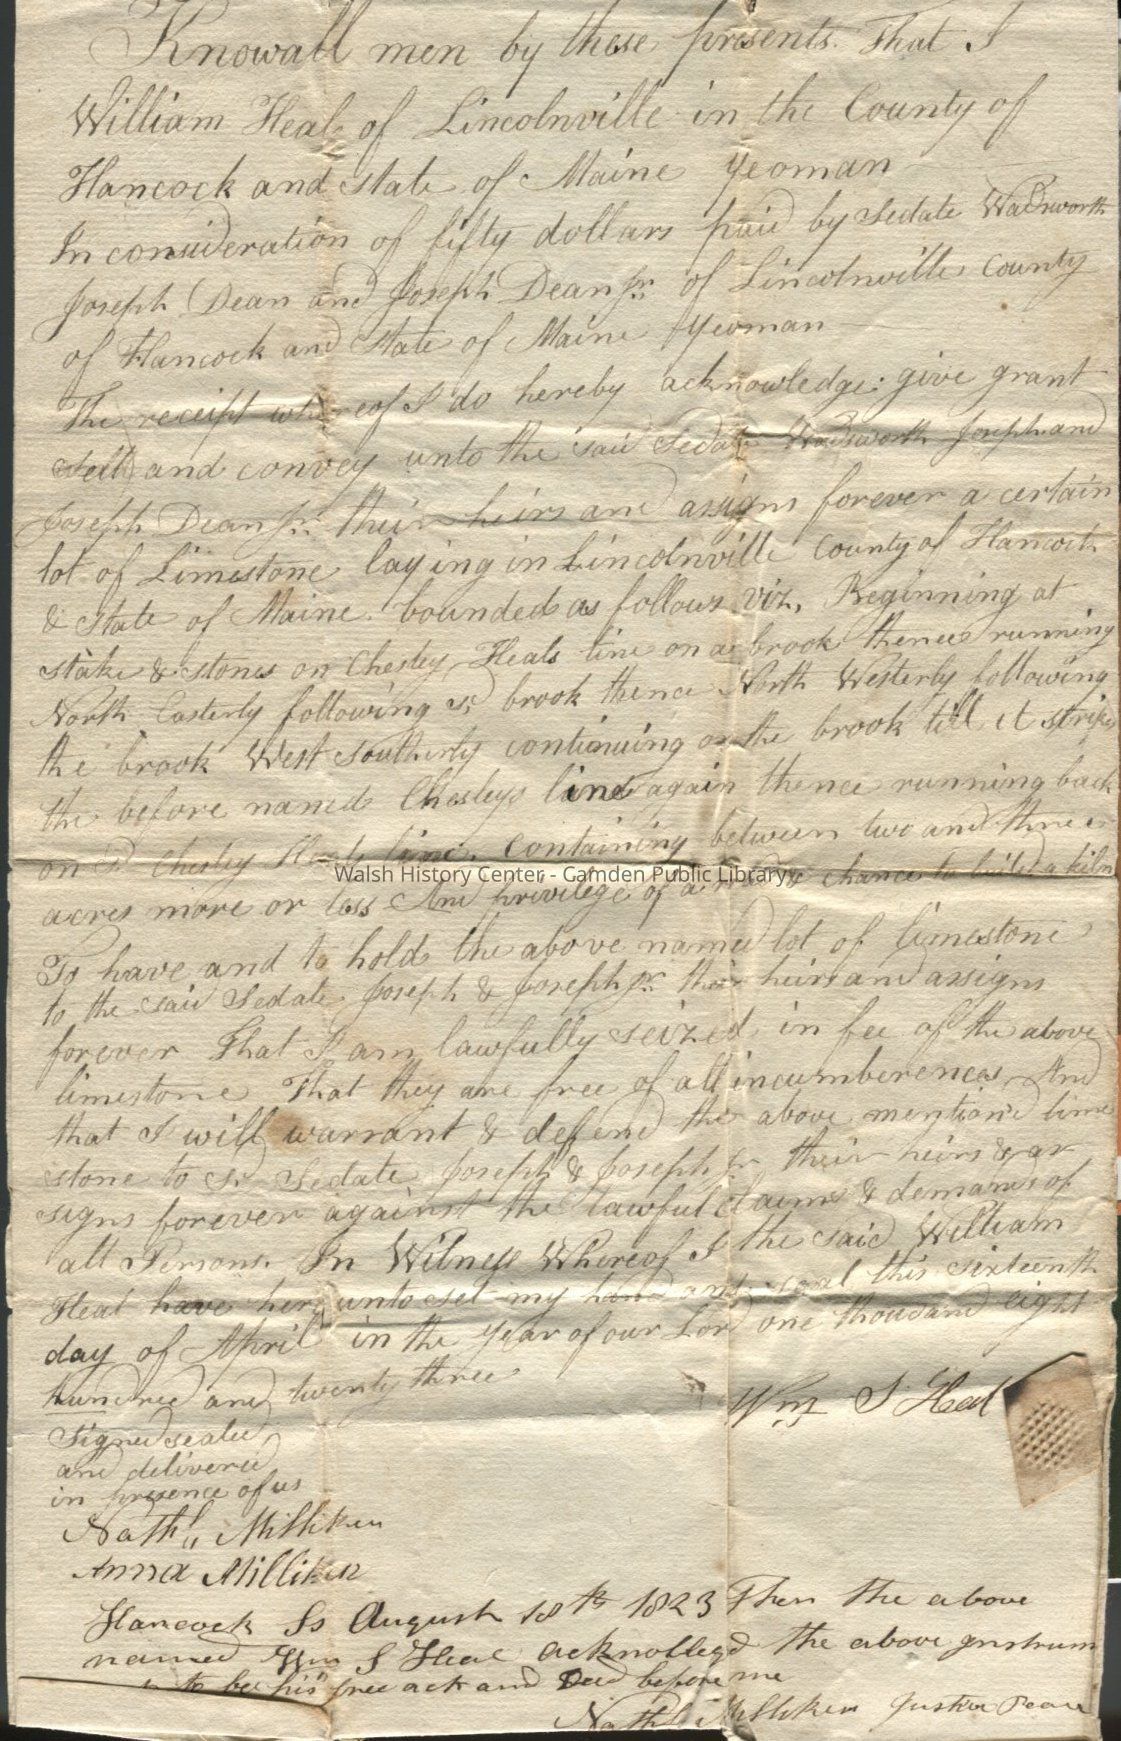 Knowall men by these presents. That I
William Heal of Lincolnville in the County of
Hancock and state of Maine yeoman
In consideration of fifty dollars paid by Sedate Wadsworth
Joseph Dean and Joseph Dean Jr. of Lincolnville County
of Hancock and State of Maine Yeoman
The receipt whereof I do hereby acknowledge: give grant
sell and convey unto the said Sedate Wadsworth Joseph and
Joseph Dean Jr. their heirs and assigns forever a certain
lot of Limestone laying in Lincolnville County of Hancock
& State of Maine bounded as follows viz, Beginning at
stake & stones on Chesley Heals line on a brook thence running
North Easterly following sd brook thence North Westerly following
the brook West Southerly continuing on the brook till it strikes
the before named Chesleys line again thence running back
on sd Chesley Heals line. Containing between two and three
acres more or less And privilege of a chance to build a kiln
Walsh History Center - Camden Public Library
To have and to hold the above named lot of limestone
to the said Sedate Joseph & Joseph Jr. their heirs and assigns
forever That I am lawfully seized in fee of the above
limestone That they are free of all incumberences And
that I will warrant & defend the above mention'd lime
stone to sd Sedate Joseph & Joseph Jr their heirs & as
signs forever against the lawful claims & demands of
all Persons. In Witness Whereof I the said William
Heal have hereunto set my hand and seal this sixteenth
day of April in the year of our Lord one thousand eight
hundred and twenty three
Wm S Heal
Signed sealed
and delivered
in presence of us
Nathl Milliken
Anna Milliken
Hancock Ss August 18th 1823 Then the above
named Wm S Heal acknolleg'd the above instrum
to be his free act and Deed before me
Nathl Milliken Justice Peace